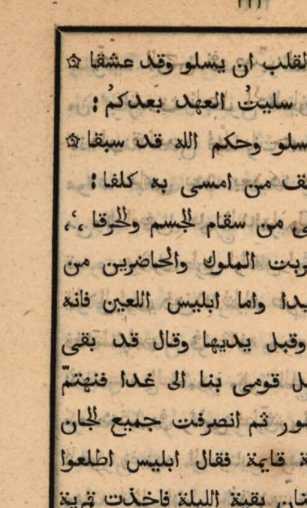 لقلب ان يسلو وقد عشقا
سليت العهد بعدكم
سلو وحكم الله قد سبقا
من امسى به كلفا
من سقام لجسم ولحرقا
الملوك والحاضرين من
واما ابليس اللعين فانه
وقبل يديها وقال قد بقى
قومى بنا الى غدا فنهتمّ
ثم انصرفت جميع لجان
قايمة فقال ابليس اطلعوا
بقية الليلة فاخذت تربة